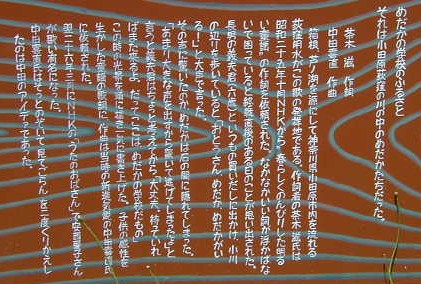 めだかの学校のふるさと
それは小田原荻窪の川の中のめだかたちだった。
茶木 滋 作詞
中田喜直 作曲
箱根、芦ノ湖を源にして神奈川県小田原市内を流れる
荻窪用水がこの歌の発祥地である。作詞者の茶木滋氏は
昭和二十五年十月NHKから"春らしくのんびりした明る
い童謡"の作詞を依頼された。なかなかいい詞が浮かばな
いで困っていると終戦直後のある日のことが思い出された。
長男の義夫君(六歳)といつもの買いだしに出かけ、小川
の辺りを歩いていると、「おとうさん、めだか、めだかがい
る!」と大声で言った。
その声に驚いたのか、めだかは石の間に隠れてしまった。
「あまり大きな声を出すから驚いて逃げてしまったよ」と
言うと義夫君はちょっと考えてから「大丈夫、待っていれ
ばまた来るよ。だってここはめだかの学校だもの」
この時の光景を頭に詩を一気に書き上げた。子供の感性を
生かした童謡の歌詞に、作曲は当時の新進気鋭の中田喜直氏
に依頼された。
昭二十六年三月にNHKの「うたのおばさん」で安西愛子さん
が歌い有名になった。
中田喜直氏は「そっとのぞいて見てごらん」を二度くりかえし
たのは中田のアイデアであった。